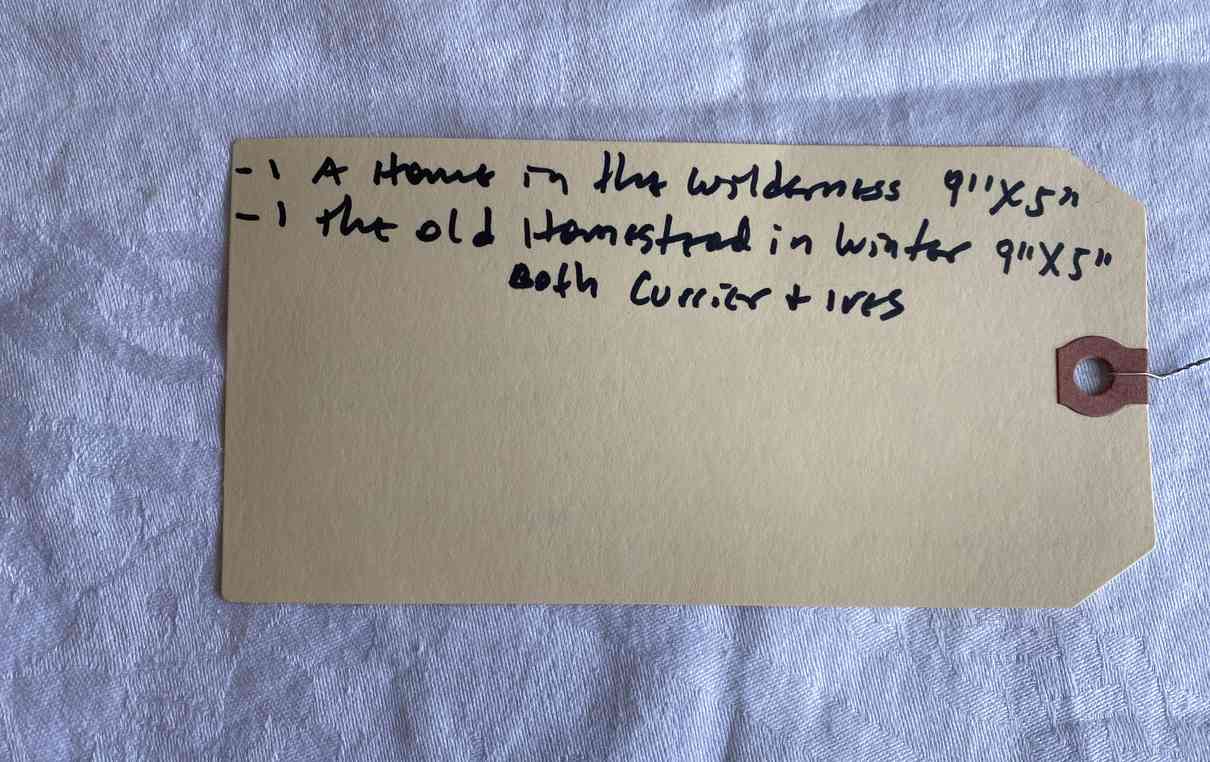 - 1 A Home in the wilderness 9"X5"
- 1 the old Homestead in winter 9"X5"
Both Currier + Ives